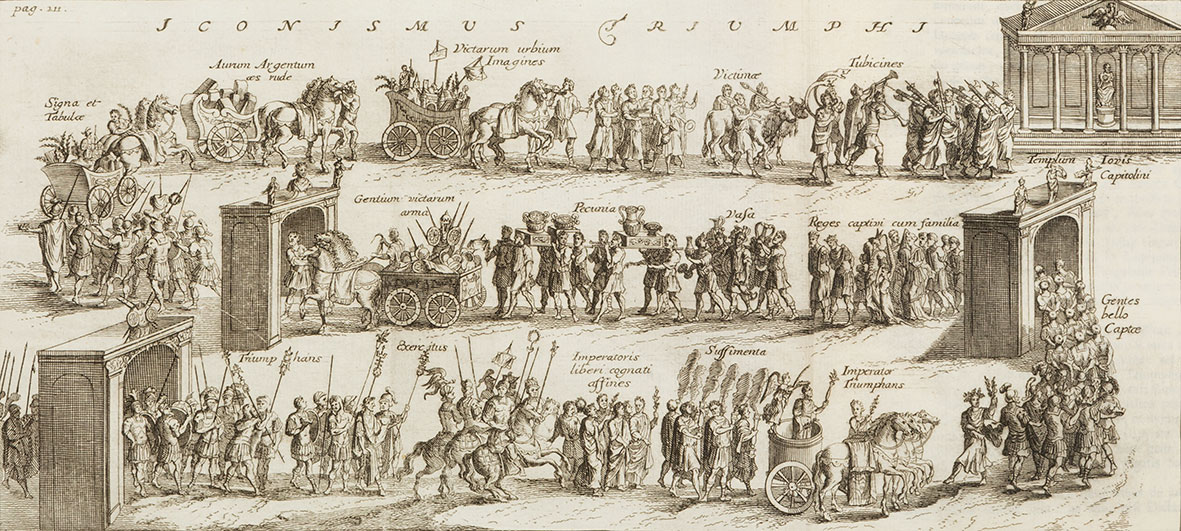 pag. 211.
ICONISMUS TRIUMPHI
Aurum Argentum
æs rude
Victarum urbium
Imagines
Victimæ
Tubicines
Signa et
Tabulæ
Templum Iovis
Capitolini
Gentium victarum
arma
Pecunia
Vasa
Reges captivi cum familia
Gentes
bello
Captæ
Triumphans
Exercitus
Imperatoris
liberi cognati
affines
Suffimenta
Imperator
Triumphans